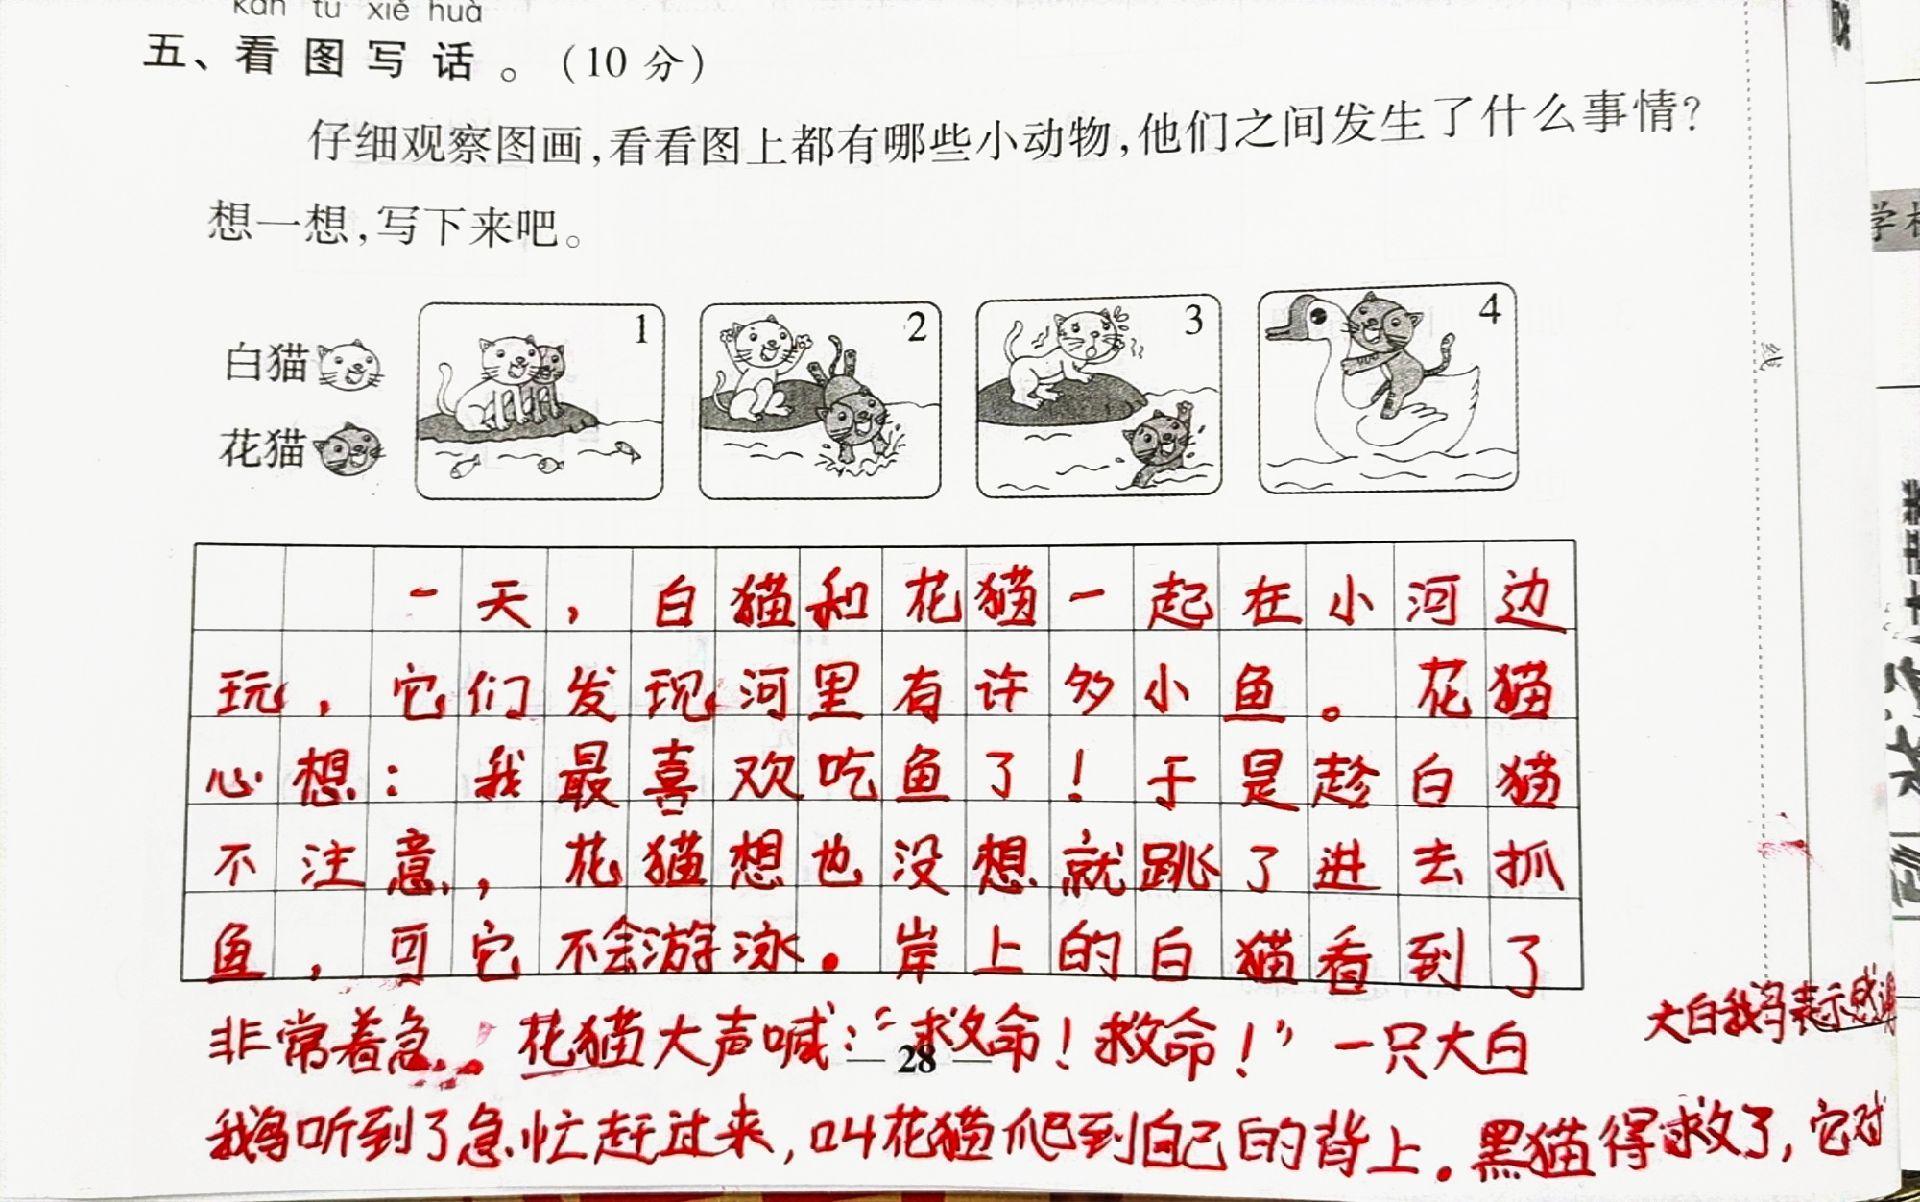 kàn tú xiě huà
五、看图写话。（10分）
仔细观察图画，看看图上都有哪些小动物，他们之间发生了什么事情？
想一想，写下来吧。
白猫
花猫
1
2
3
4
一天，白猫和花猫一起在小河边
玩，它们发现河里有许多小鱼。花猫
心想：我最喜欢吃鱼了！于是趁白猫
不注意，花猫想也没想，就跳了进去抓
鱼，可它不会游泳。岸上的白猫看到了
非常着急。花猫大声喊：“救命！救命！”一只大白
鹅听到了急忙赶过来，叫花猫爬到自己的背上。黑猫得救了，它对
大白鹅表示感谢
— 28 —
线
学校